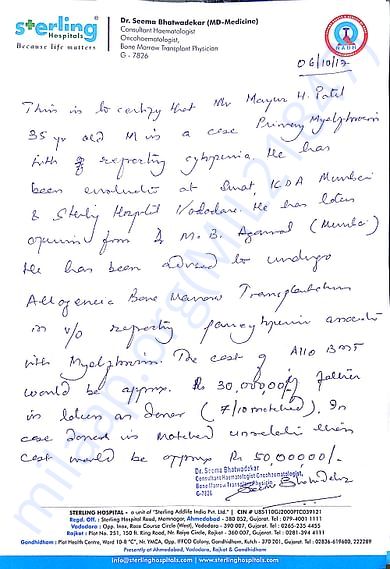 sterling
Hospitals
Because life matters
Dr. Seema Bhatwadekar (MD-Medicine)
Consultant Haematologist
Oncohaematologist,
Bone Marrow Transplant Physician
G - 7826
NABH
06/10/17
This is to certify that Mr Mayur H. Patel
35 yr old M is a case Primary Myelofibrosis
with cytopenia. He has
been evaluated at Surat, Mumbai
& Sterling Hospital Vadodara. He has taken
opinion from Dr M. B. Agarwal (Mumbai)
He has been advised to undergo
Allogeneic Bone Marrow Transplantation
in v/o pancytopenia associated
with Myelofibrosis. The cost of Allo BMT
would be approx. Rs 30,00,000/- if father
is taken as donor (7/10 matched). In
case donor is matched unrelated then
cost would be approx Rs 50,00000/-.
Dr. Seema Bhatwadekar
Consultant Haematologist Oncohaematologist,
Bone Marrow Transplant Physician
G-7826
milaap.org
STERLING HOSPITAL - a unit of "Sterling Addlife India Pvt. Ltd." | CIN # U85110GJ2000PTC039121
Regd. Off. : Sterling Hospital Road, Memnagar, Ahmedabad - 380 052, Gujarat. Tel : 079-4001 1111
Vadodara : Opp. Inox, Race Course Circle (West), Vadodara - 390 007, Gujarat. Tel : 0265-235 4455
Rajkot : Plot No. 251, 150 ft. Ring Road, Nr. Raiya Circle, Rajkot - 360 007, Gujarat. Tel : 0281-394 4111
Gandhidham : Plot Health Centre, Ward 10-B "C", Nr. YMCA, Opp. IFFCO Colony, Gandhidham, Kutch - 370 201, Gujarat. Tel : 02836-619600, 222289
Presently at Ahmedabad, Vadodara, Rajkot & Gandhidham
info@sterlinghospitals.com www.sterlinghospitals.com